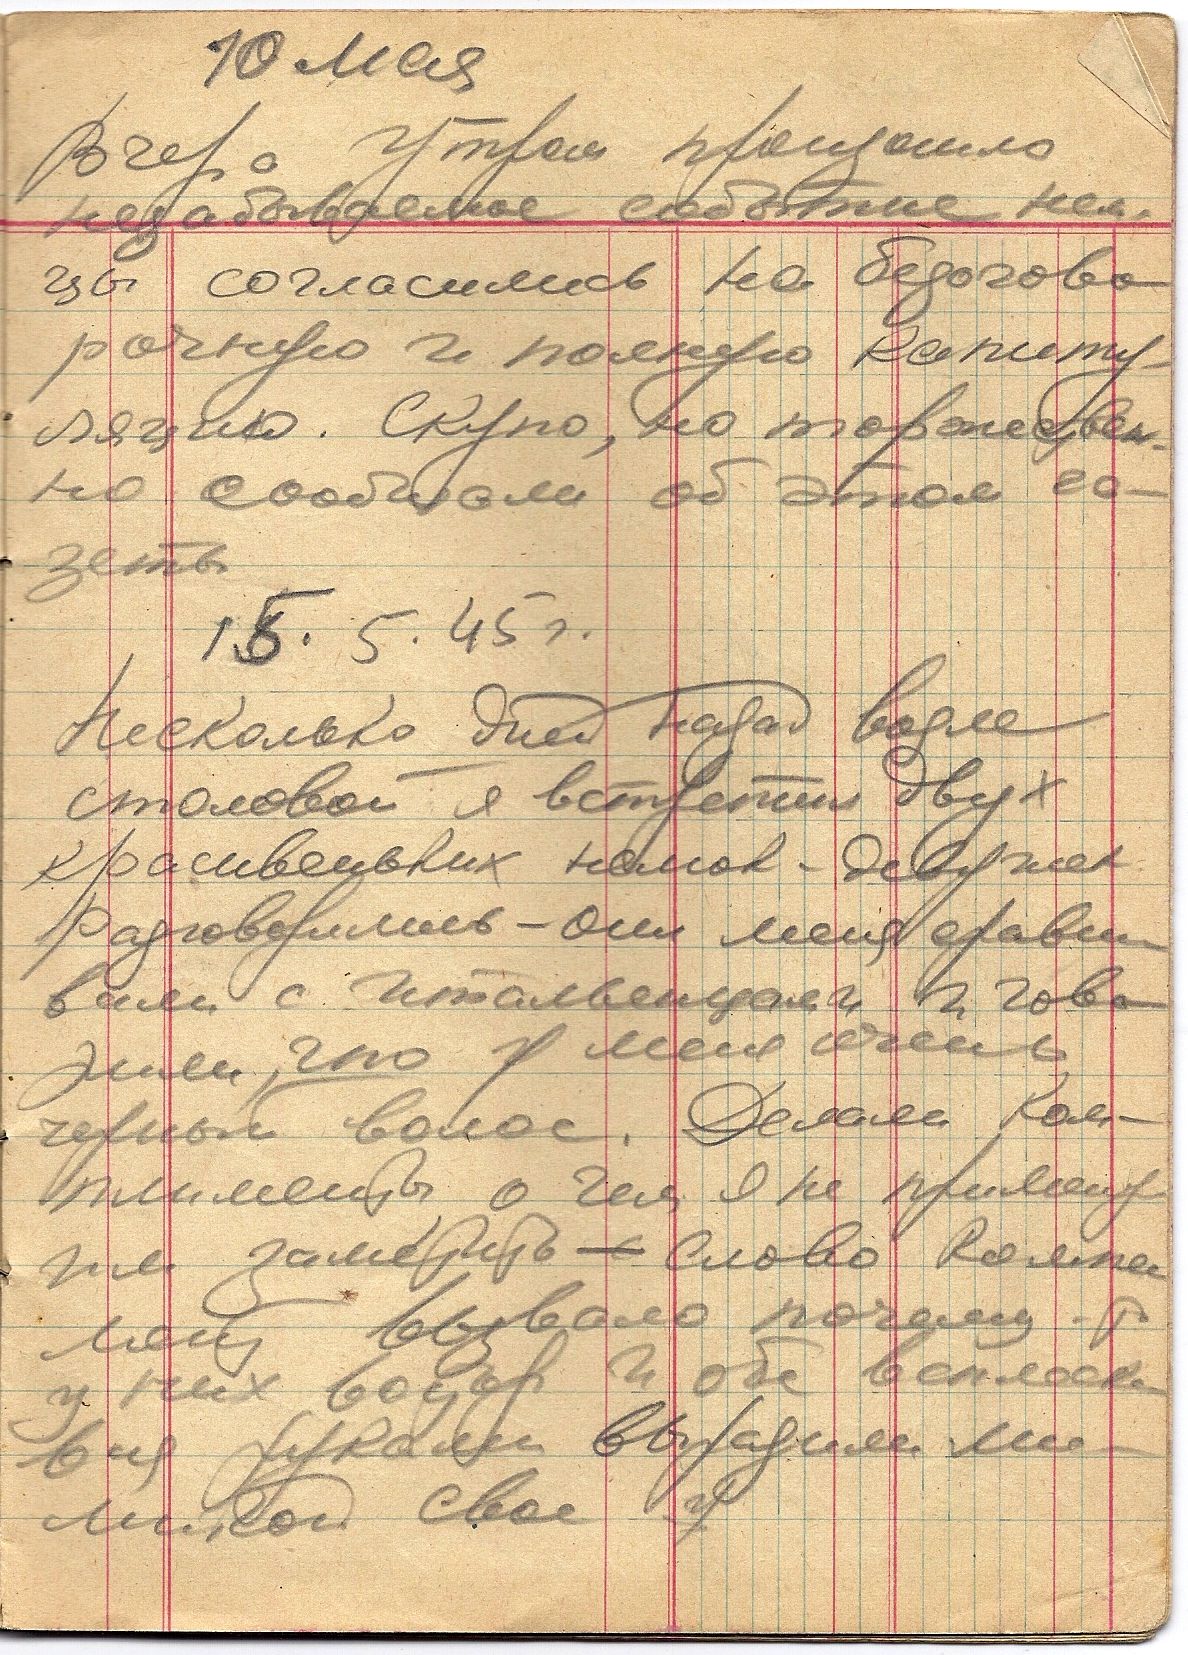 10 мая
Вчера утром произошло
незабываемое событие нем-
цы согласились на безогово
рочную и полную капиту-
ляцию. Скупо, но торжествен-
но сообщали об этом га-
зеты
15. 5. 45 г.
Несколько дней назад возле
столовой я встретил двух
красивеньких немок-девушек
Разговорились – они меня сравни
вали с итальянцами и гово
рили, что у меня очень
черный волос. Делали ком-
плименты, о чем я не приминул
им заметить – слово компли
мент вызвало почему-то
у них восторг и обе всплеснув
руками выразили ми-
микой свое